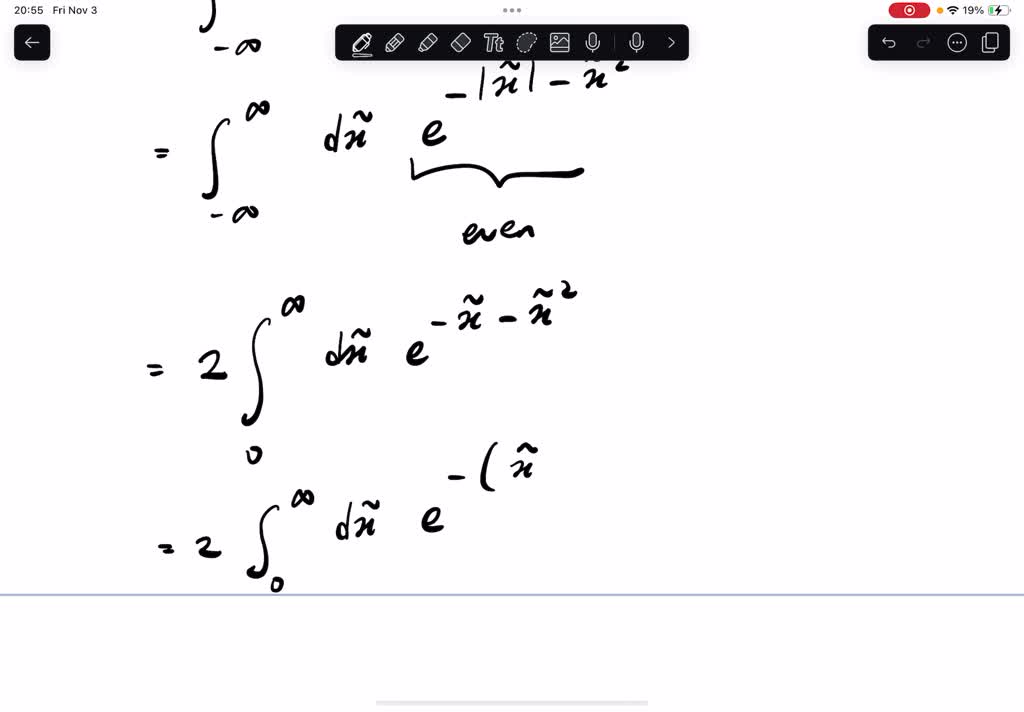 20:55 Fri Nov 3 19%
Tt
∫_{-∞}
= ∫_{-∞}^{∞} dx̃ e^{-|x̃| - x̃²}
even
= 2 ∫_0^∞ dx̃ e^{-x̃ - x̃²}
= 2 ∫_0^∞ dx̃ e^{-(x̃